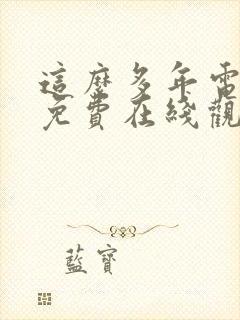 這麼多年電
免費在綫觀
藍寶